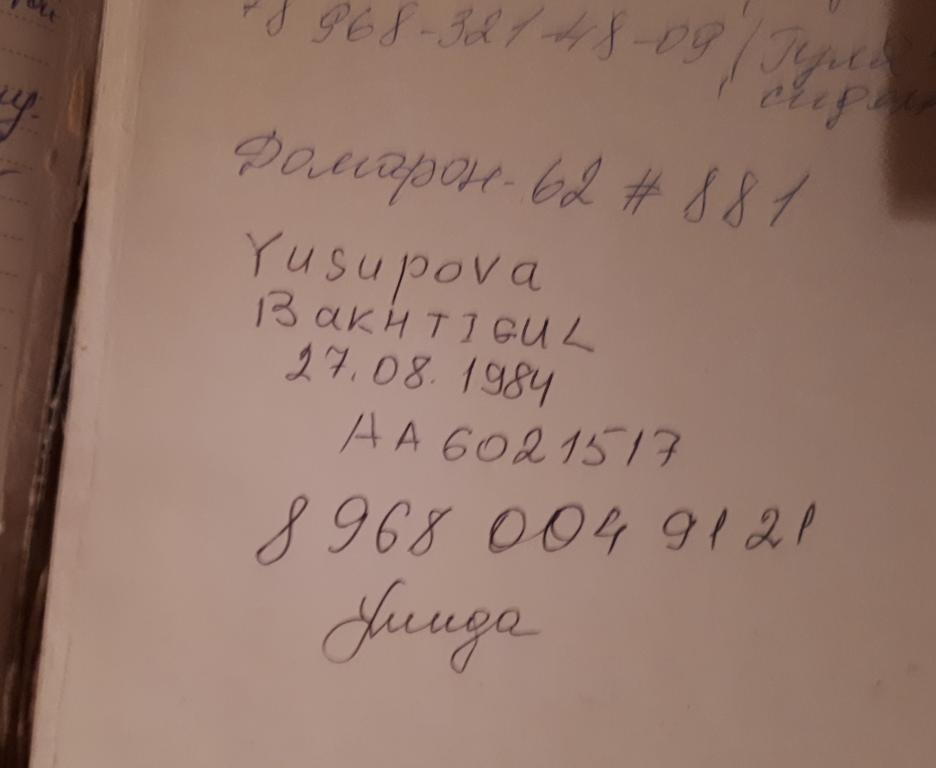 8 968-321-48-09 / Гуля
Домарон-62 # 881
Yusupova
BAKHTIGUL
27.08.1984
AA6021517
8 968 004 91 21
Умида